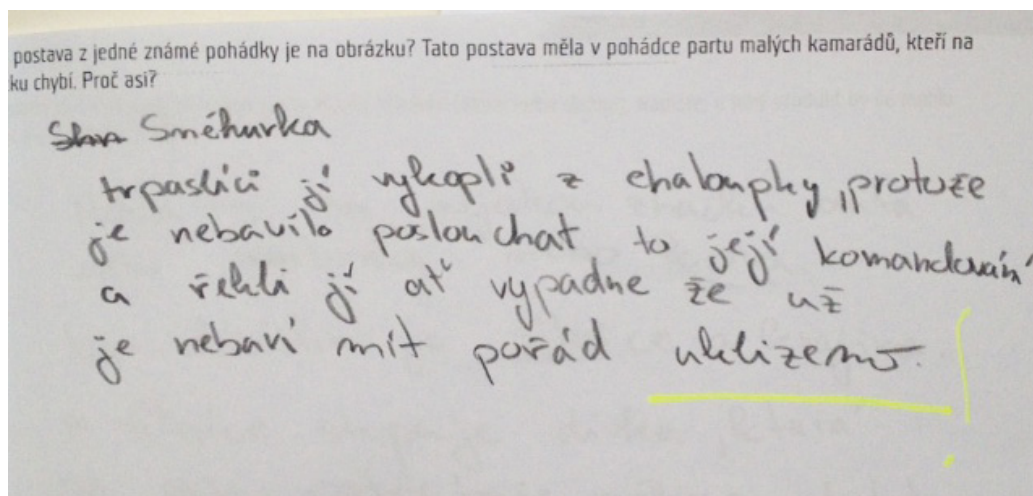 postava z jedné známé pohádky je na obrázku? Tato postava měla v pohádce partu malých kamarádů, kteří na
ku chybí. Proč asi?
Sněhurka
trpaslíci jí vykopli z chaloupky, protože
je nebavilo poslouchat to její komandování
a řekli jí ať vypadne že už
je nebaví mít pořád uklizeno.